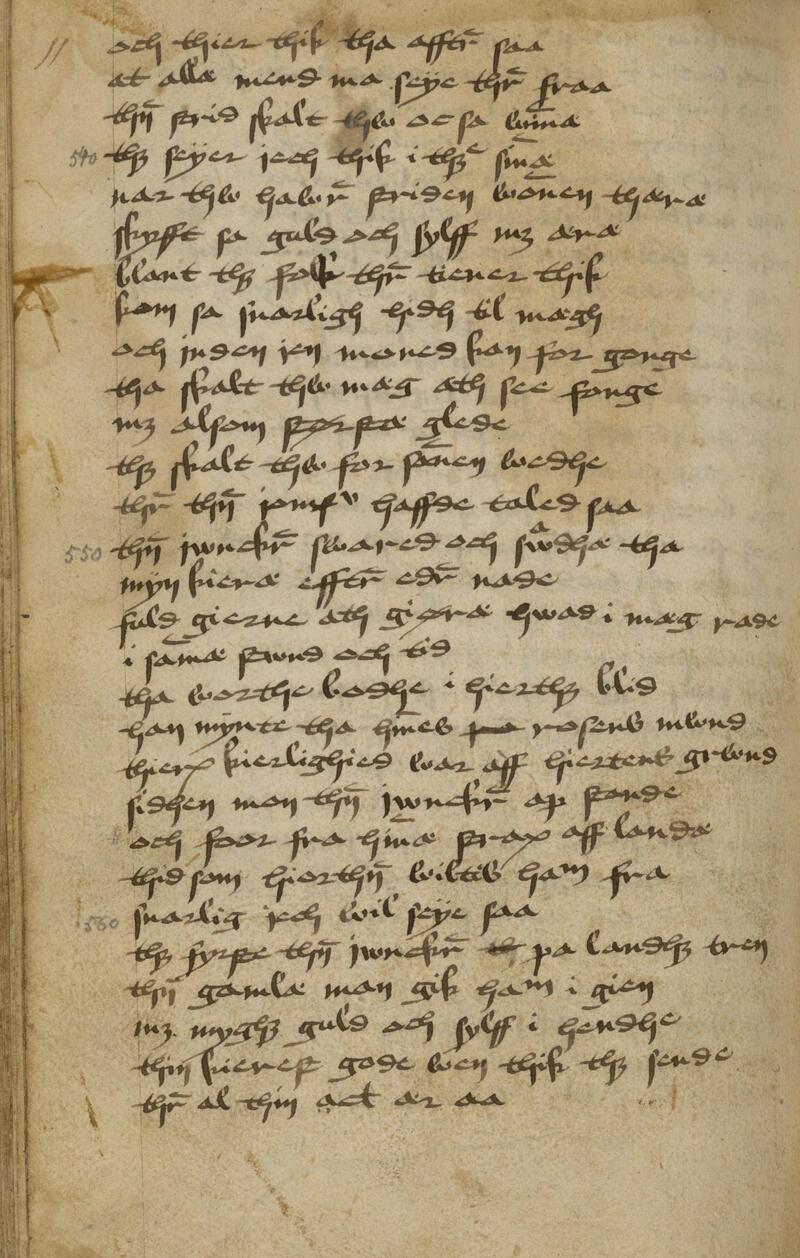 11 och thier thik tha afft̄r saa
at allæ mend ma seye thr̄ fraa
thn̄ priid skalt thw oc sa win̄æ
540 thꝫ seyer jech thik i thꝫe sin̄æ
nar thw hawr̄ priden wōnen thæræ
skyfft sa guld och sylff mꝫ æræ
blant thꝫ folk thr̄ tiener thik
kom sa snarligh hidh til mægh
och jnden jen moned kan for gonge
tha skalt thw mæg ath see fonge
mꝫ alsom størstæ glede
thꝫ skalt thw for sn̄en wedhe
thr̄ thn̄ jomfv haffde taled saa
550 thn̄ jwnckr̄ swared och swdhæ tha
myn kieræ efft̄r edr̄ nade
fuld gierne ath giøræ hwad i mæg rade
i sam̄æ stwnd och tid
tha worthe bodhe i hierthꝫ blid
han mynte tha hn̄es rosens mwnd
thierø kierlighied war aff hiertens grwnd
sidhen mon thn̄ jwnckr̄ op stande
och foor fra hn̄næ strax aff landæ
thid som hiorthn̄ wiltes ham fra
560 snarlig jech wil seye saa
thꝫ fyrste thn̄ jwnckr̄ pa landhꝫ tren
thn̄ gamlæ man gik ham i gien
mꝫ myghꝫ guld och sylff i hendhe
thin kierest gode wen thik thꝫ sende
thr̄ al thin act ær aa